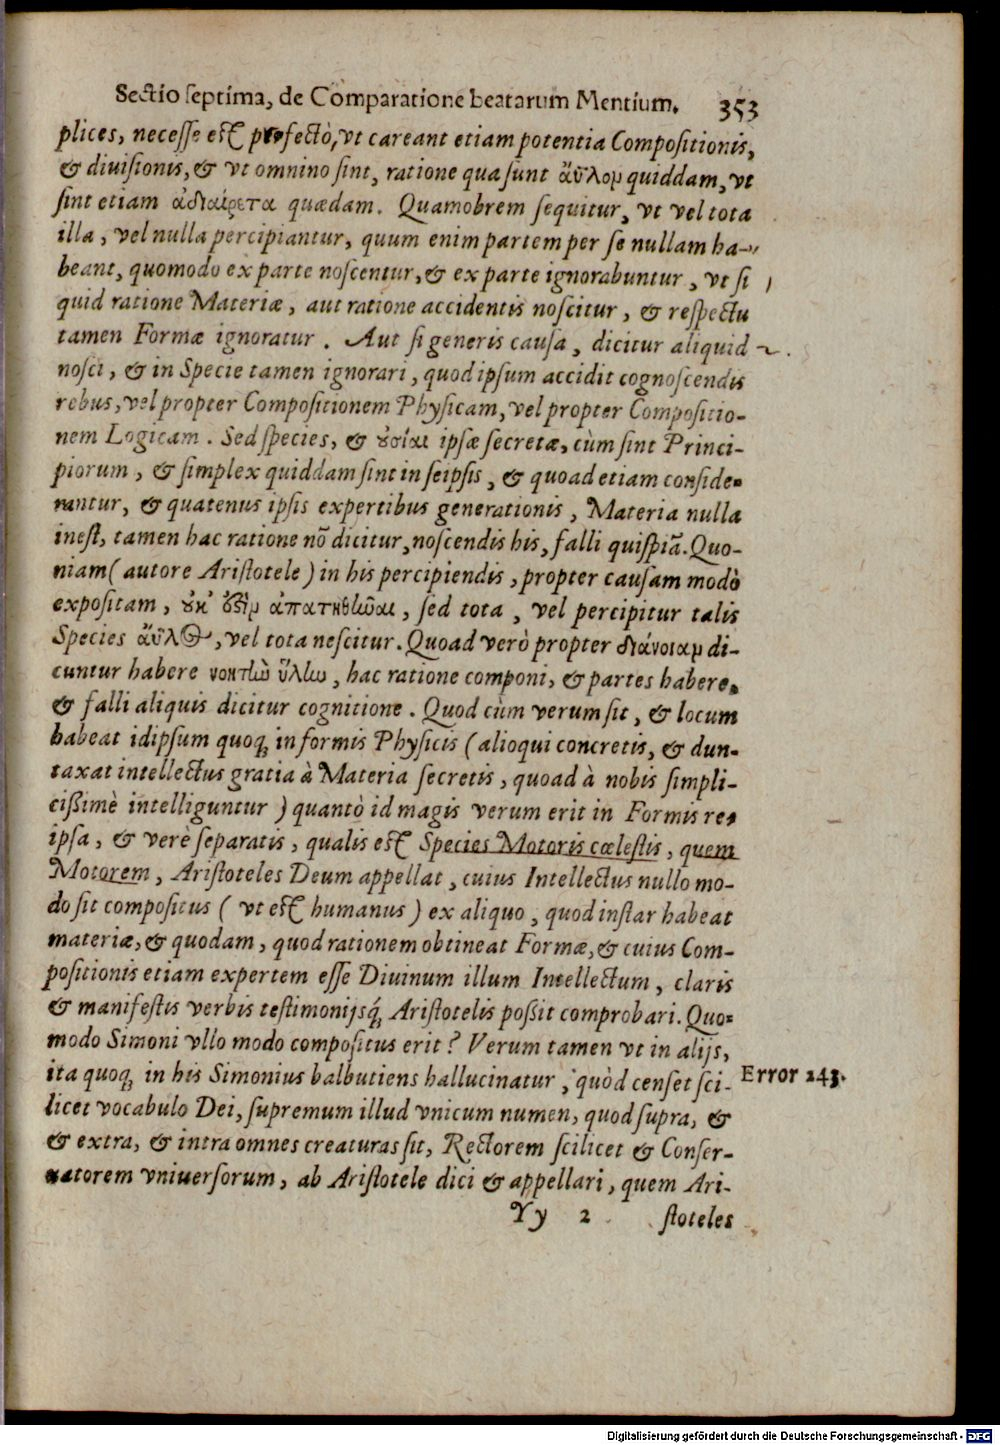 Sectio septima, de Comparatione beatarum Mentium. 353
plices, necesse est profectò, vt careant etiam potentia Compositionis,
& diuisionis, & vt omnino sint, ratione qua sunt ἄϋλομ quiddam, vt
sint etiam ἀδιαίρετα quædam. Quamobrem sequitur, vt vel tota
illa, vel nulla percipiantur, quum enim partem per se nullam ha-
beant, quomodo ex parte noscentur, & ex parte ignorabuntur, vt si
quid ratione Materiæ, aut ratione accidentis noscitur, & respectu
tamen Formæ ignoratur. Aut si generis causa, dicitur aliquid
nosci, & in Specie tamen ignorari, quod ipsum accidit cognoscendis
rebus, vel propter Compositionem Physicam, vel propter Compositio-
nem Logicam. Sed species, & ȣσίαι ipsæ secretæ, cùm sint Princi-
piorum, & simplex quiddam sint in seipsis, & quoad etiam conside-
rantur, & quatenus ipsis expertibus generationis, Materia nulla
inest, tamen hac ratione nō dicitur, noscendis his, falli quispiā. Quo-
niam (autore Aristotele) in his percipiendis, propter causam modò
expositam, ȣκ ὅζιμ ἀπατηθῶαι, sed tota, vel percipitur talis
Species ἄϋλ☉, vel tota nescitur. Quoad verò propter διάνοιαμ di-
cuntur habere νοητὼ ὕλω, hac ratione componi, & partes habere,
& falli aliquis dicitur cognitione. Quod cùm verum sit, & locum
habeat idipsum quoq; in formis Physicis (alioqui concretis, & dun-
taxat intellectus gratia à Materia secretis, quoad à nobis simpli-
cißimè intelliguntur) quantò id magis verum erit in Formis re-
ipsa, & verè separatis, qualis est Species Motoris cœlestis, quem
Motorem, Aristoteles Deum appellat, cuius Intellectus nullo mo-
do sit compositus (vt est humanus) ex aliquo, quod instar habeat
materiæ, & quodam, quod rationem obtineat Formæ, & cuius Com-
positionis etiam expertem esse Diuinum illum Intellectum, claris
& manifestis verbis testimonijsq́; Aristotelis poßit comprobari. Quo-
modo Simoni vllo modo compositus erit? Verum tamen vt in alijs,
ita quoq; in his Simonius balbutiens hallucinatur, quòd censet sci-
Error 243.
licet vocabulo Dei, supremum illud vnicum numen, quod supra, &
& extra, & intra omnes creaturas sit, Rectorem scilicet & Conser-
uatorem vniuersorum, ab Aristotele dici & appellari, quem Ari-
Yy 2 stoteles
Digitalisierung gefördert durch die Deutsche Forschungsgemeinschaft - DFG